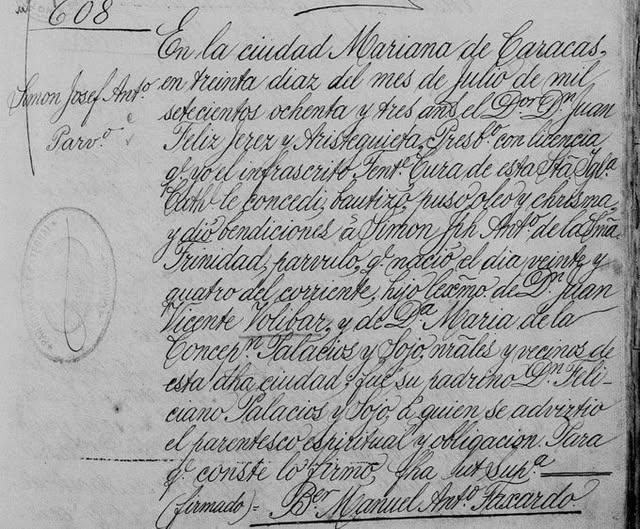 608
Simon Josef Antº.
Parvº.
En la ciudad Mariana de Caracas,
en treinta diaz del mes de Julio de mil
setecientos ochenta y tres ans el Dor. Dn. Juan
Feliz Jerez y Aristeguieta, Presbº. con licencia
qe. yo el infrascrito Tente. Cura de esta Sta. Igla.
Cathl. le concedi, bautizó, puso oleo y chrisma,
y dió bendiciones á Simon Jph Antº. de la Sma.
Trinidad, parvulo, qe. nació el dia veinte y
quatro del corriente, hijo lexmo. de Dn. Juan
Vicente Volibar, y de Da. Maria de la
Concepn. Palacios y Sojo, nrales y vecinos de
esta dha ciudad: fué su padrino Dn. Feli-
ciano Palacios y Sojo, á quien se advirtio
el parentesco espiritual y obligacion. Para
qe. conste lo firmo, fha ut supa.
(firmado) = Ber. Manuel Antº. Faxardo